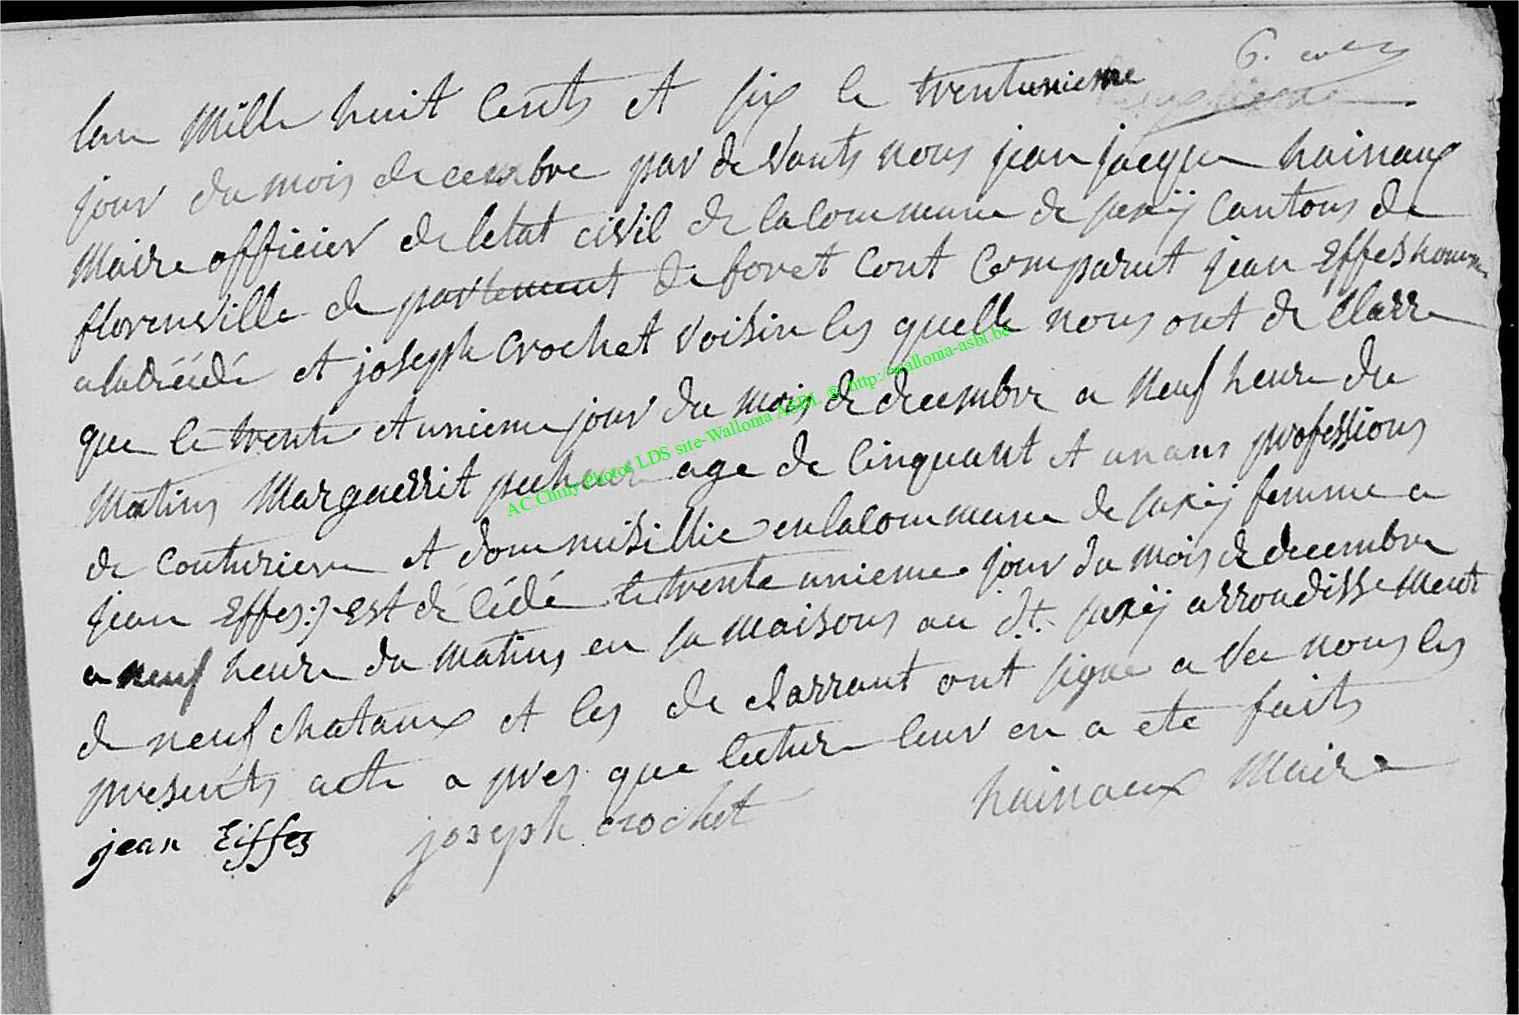 lan mille huit Cents et six le trentunieme
jour du mois decembre par de Vants nous jean jacque hainaux
Maire officier de letat civil de la Commune de juxÿ Cantons de
florenville de partement de foret Cont Comparut jean Effes homme
a la décédé et joseph Crochet Voisin les quelle nous ont de Clarre
que le trente et unieme jour du mois de decembre a neuf heure du
matins Marguerrit age de Cinquant et un ans professions
de Couturiere et dommisillie en la Commune de juxÿ femme a
jean Effes :) est décédé le trente unieme jour du mois de decembre
a neuf heure du matins en sa maisons au dt. juxÿ arrondissement
de neufchataux et les de Clarrant ont signe a Vec nous les
presents acte a pres que lecture leur en a ete faits
jean Eiffes joseph crochet hainaux Maire
AC Chiny Photos LDS site-Walloma ASBL & http://walloma-asbl.be